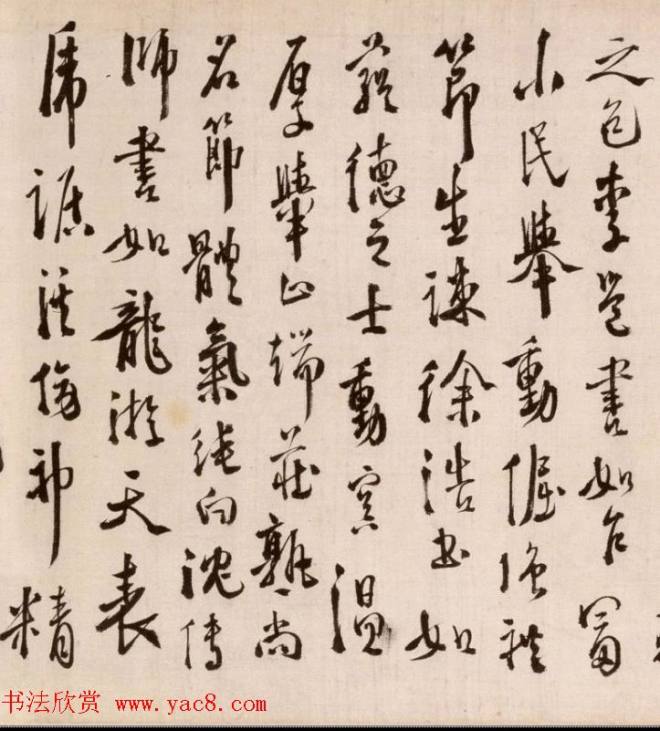 之色李邕書如乍富
小民舉動倔强禮
節生疎徐浩書如
蘊德之士動容温
厚舉止端莊敦尚
名節體氣純白沈傳
師書如龍游天表
虎踞溪傍神精
书法欣赏 www.yac8.com